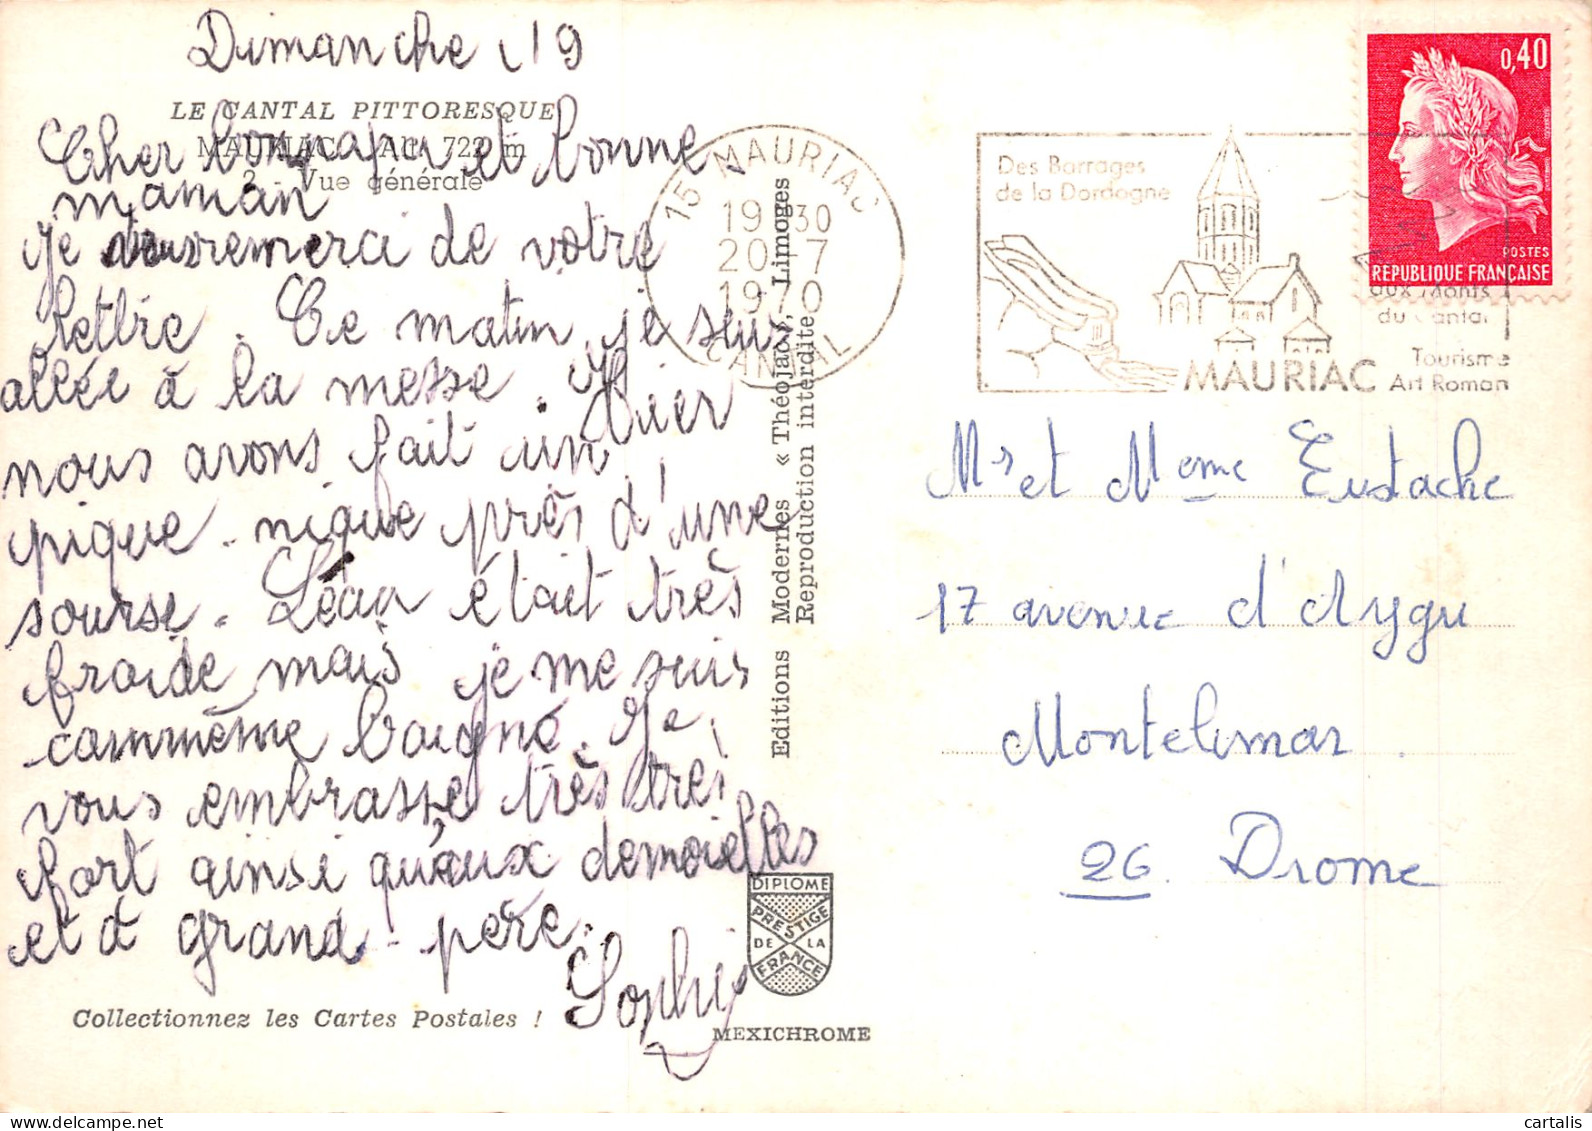 Dimanche 19
LE CANTAL PITTORESQUE
MAURIAC Alt. 722 m
2 - Vue générale
Cher bon papa et bonne
maman
Je vous remerci de votre
lettre. Ce matin je suis
allée à la messe. Hier
nous avons fait un
pique-nique près d'une
sourse. Léau était très
froide mais je me suis
cammême baigné. Je
vous embrasse très très
fort ainsi qu'aux demoielles
et à grand-père.
Sophie
Collectionnez les Cartes Postales !
Editions Modernes « Théojac », Limoges
Reproduction interdite
DIPLOME
PRESTIGE
DE LA
FRANCE
MEXICHROME
15 MAURIAC
19 30
20 - 7
1970
CANTAL
Des Barrages
de la Dordogne
aux Monts
du Cantal
MAURIAC
Tourisme
Art Roman
0,40
POSTES
REPUBLIQUE FRANÇAISE
Mr et Meme Eustache
17 avenue d'Aygu
Montelimar.
26. Drome
cartalis